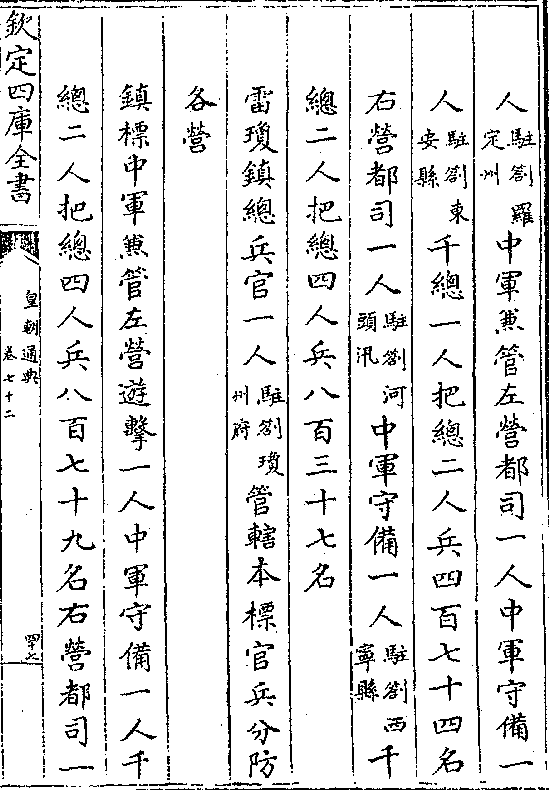 人駐劄羅定州中軍兼管左營都司一人中軍守備一
人駐劄東安縣千總一人把總二人兵四百七十四名
右營都司一人駐劄河頭汛中軍守備一人駐劄西寧縣千
總二人把總四人兵八百三十七名
雷瓊鎮總兵官一人駐劄瓊州府管轄本標官兵分防
各營
鎮標中軍兼管左營遊擊一人中軍守備一人千
總二人把總四人兵八百七十九名右營都司一
欽定四庫全書
皇朝通典
卷七十二